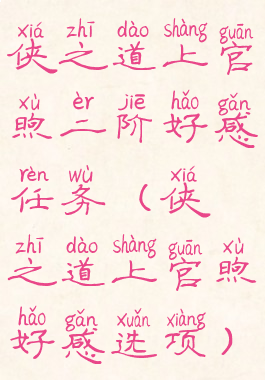 xiá zhī dào shàng guān
侠之道上官
xù èr jiē hǎo gǎn
煦二阶好感
rèn wù xiá
任务（侠
zhī dào shàng guān xù
之道上官煦
hǎo gǎn xuǎn xiàng
好感选项）